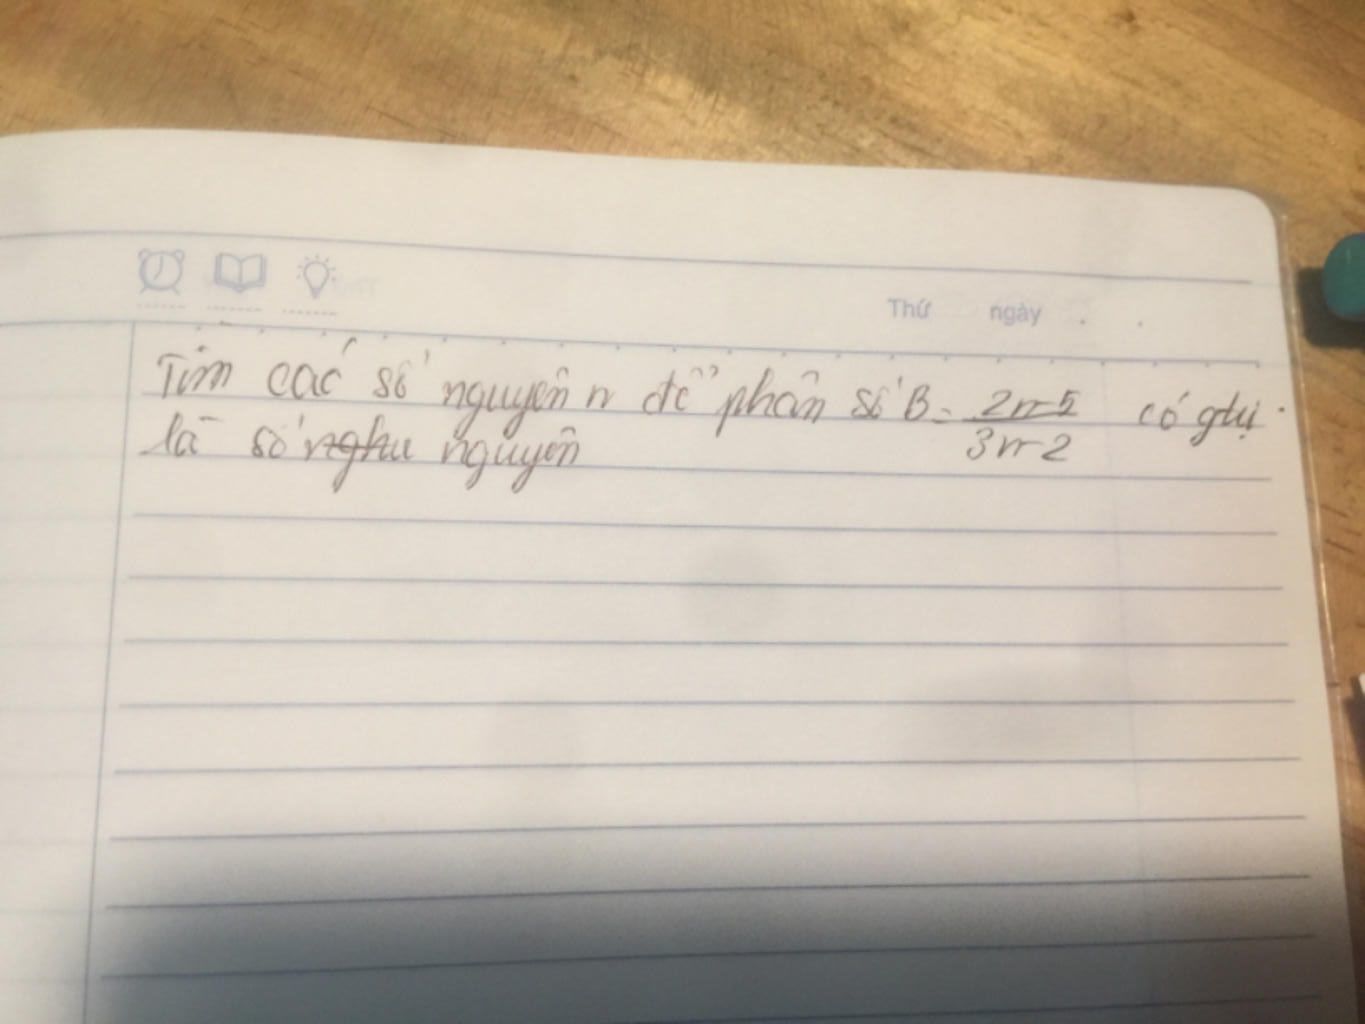 Thứ ngày
Tìm các số nguyên n để phân số B = \frac{2n-5}{3n-2} có gtrị
là số nguyên